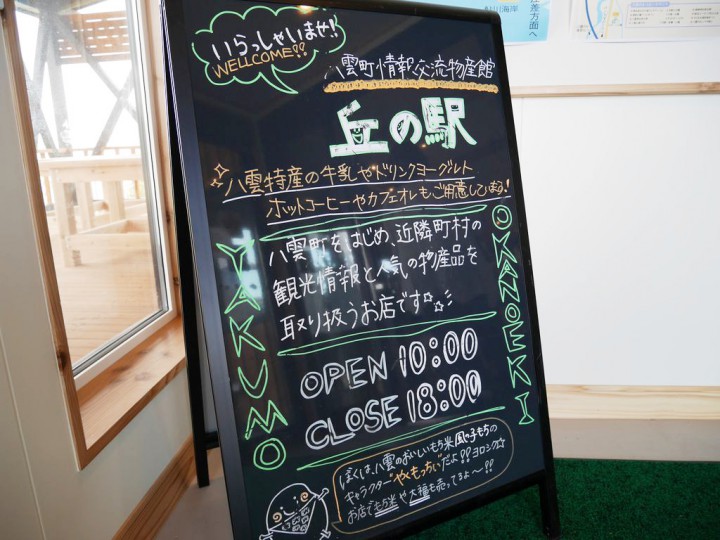 いらっしゃいませ!
WELLCOME!!
八雲町情報交流物産館
丘の駅
八雲特産の牛乳やドリンクヨーグルト
ホットコーヒーやカフェオレもご用意しています!
YAKUMO
八雲町をはじめ、近隣町村の
観光情報と人気の物産品を
取り扱うお店です☆☆
OKANOEKI
OPEN 10:00
CLOSE 18:00
ぼくは、八雲のおいしいもち米風の子もちの
キャラクターやくもっちぃだよ!!ヨロシク☆
お店でもち米や大福も売ってるよ〜!!
方面へ